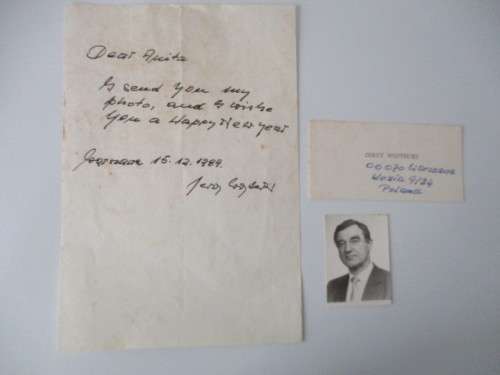 Dear Anita
I send you my
photo, and I wish
You a Happy New year
15.12.1989.
Jerzy
JERZY WOJTECKI
00 070
9/24
Poland